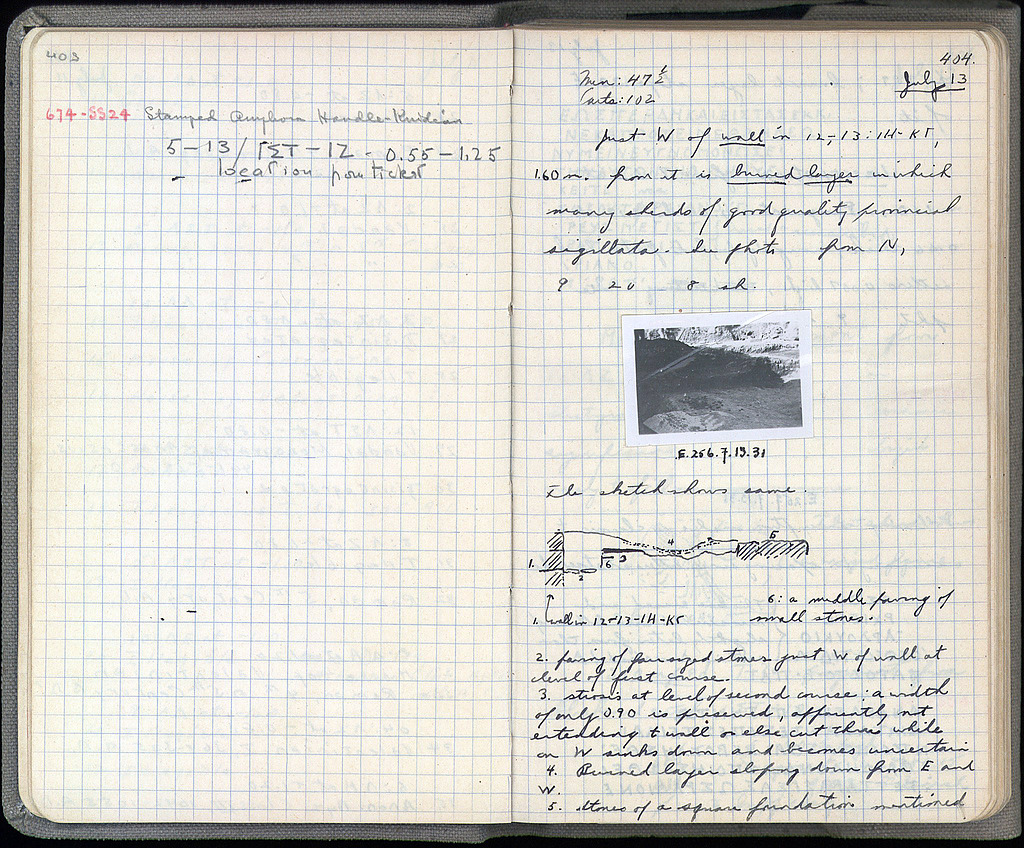 403
674-SS24 Stamped Amphora Handle-Knidian
5-13/ΓΣΤ-ΙΖ - 0.55-1.25
location from ticket
404.
Men: 47 1/2
Carts: 102
July 13
Just W of wall in 12-13:ΙΗ-ΚΓ,
1.60 m. from it is burned layer in which
many sherds of good quality provincial
sigillata. See photo from N,
9 20 8 sh.
E.256.7.13.31
The sketch shows same.
1. 2 3 4 5 6
6: a middle paving of
small stones.
1. Wall in 12-13-ΙΗ-ΚΓ
2. paving of fair sized stones just W of wall at
level of first course.
3. strosis at level of second course: a width
of only 0.90 is preserved, apparently not
extending to wall or else cut thru while
on W sinks down and becomes uncertain
4. Burned layer sloping down from E and
W.
5. Stones of a square foundation mentioned